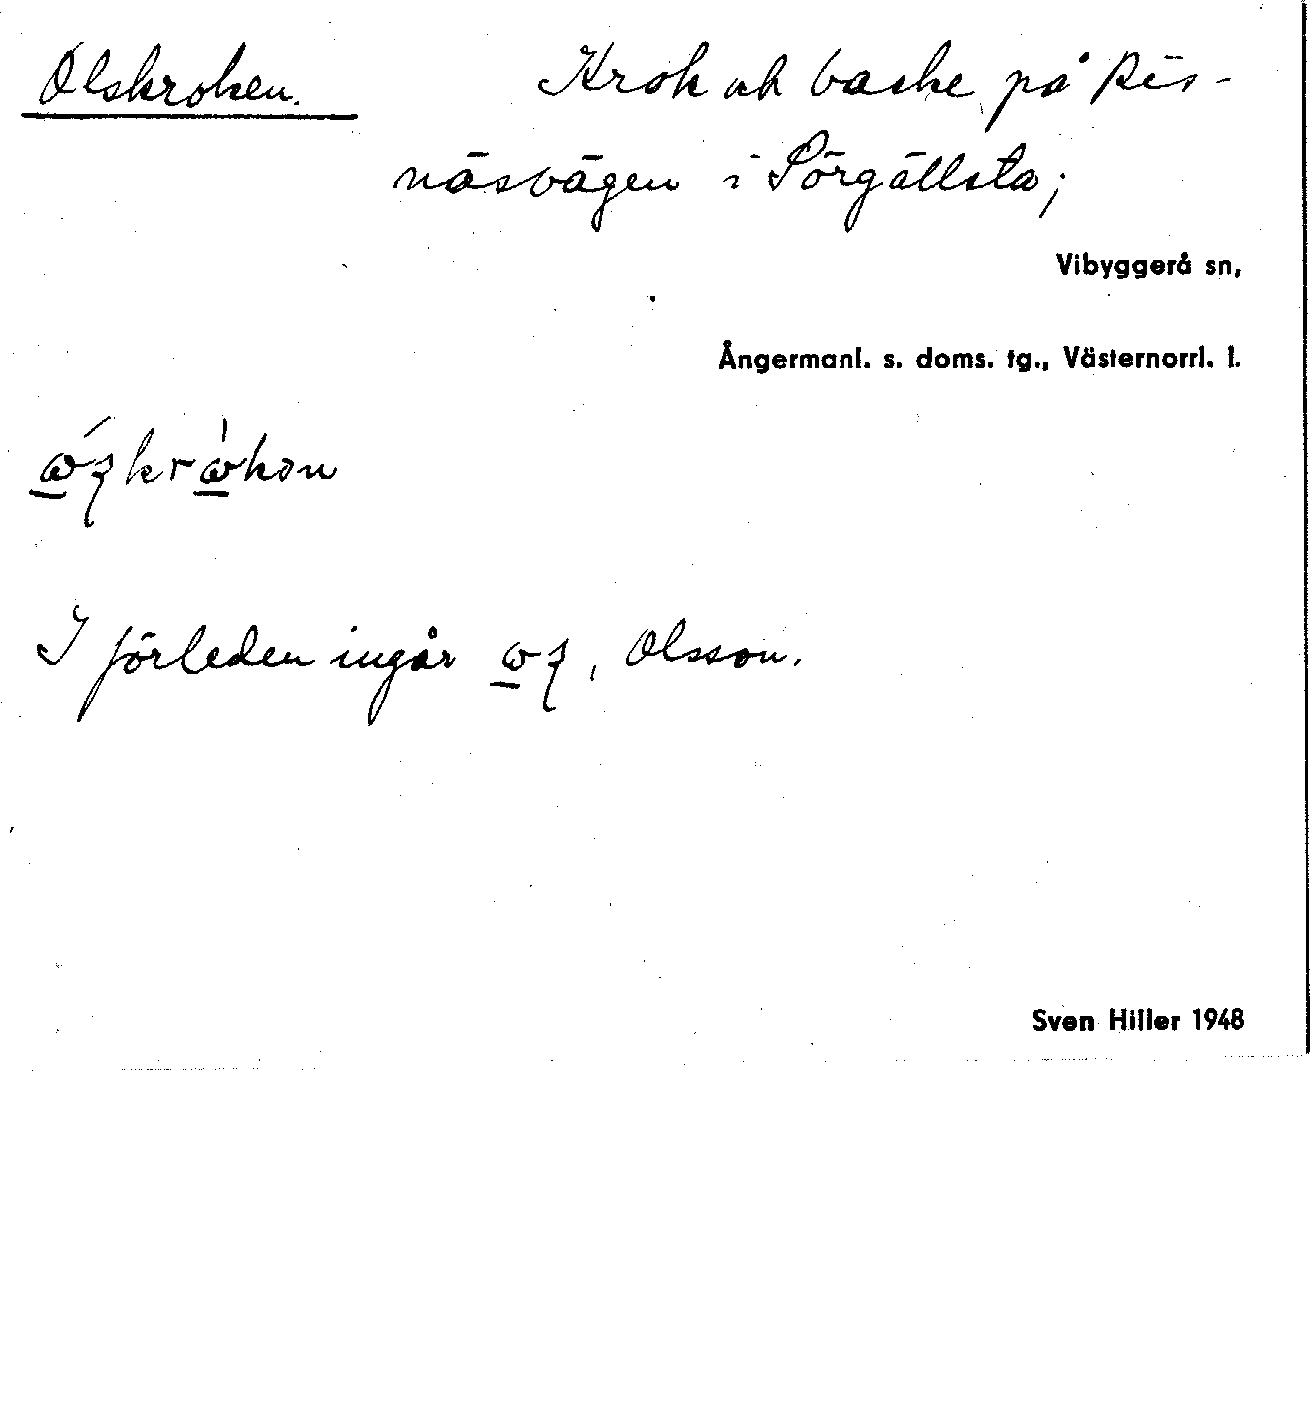 Olskroken. Krok och backe på Res-
näsvägen i Sörgällsta;
Vibyggerå sn,
Ångermanl. s. doms. tg., Västernorrl. l.
I förleden ingår , Olsson.
Sven Hiller 1948